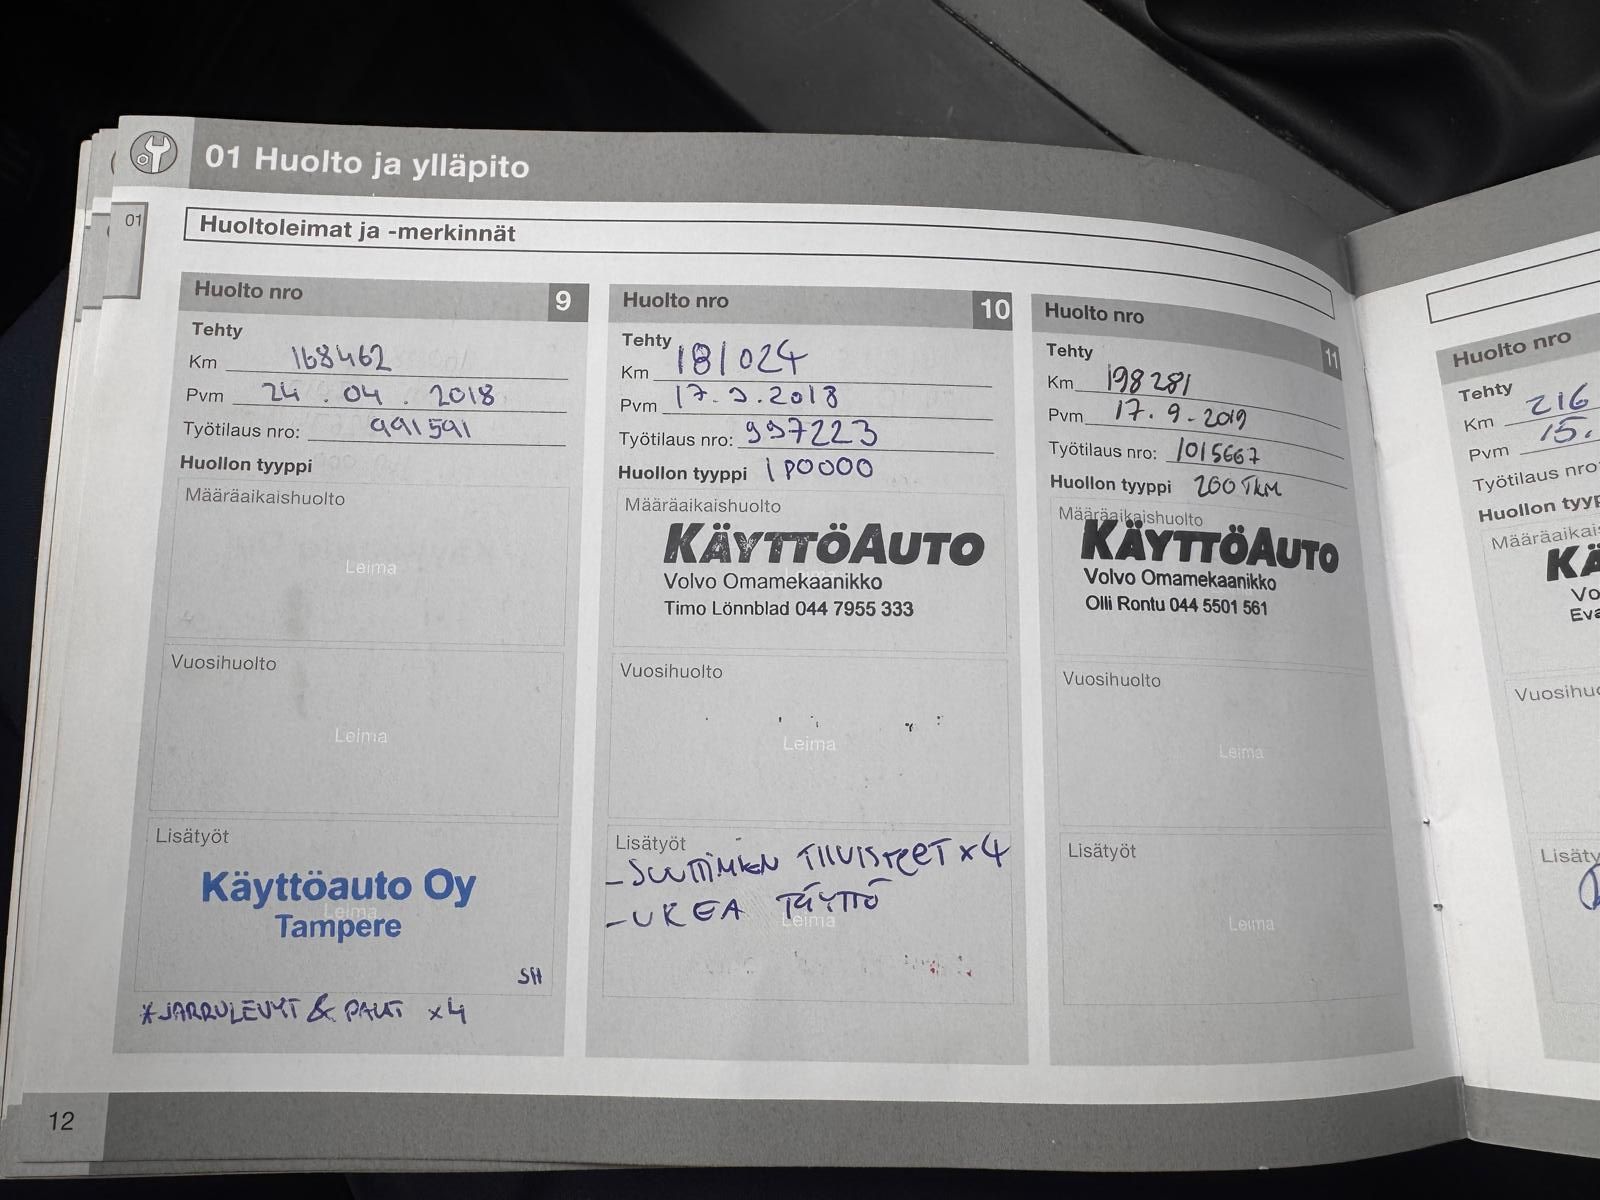 01 Huolto ja ylläpito
01
Huoltoleimat ja -merkinnät
Huolto nro 9
Tehty
Km 168462
Pvm 24.04.2018
Työtilaus nro: 991591
Huollon tyyppi
Määräaikaishuolto
Leima
Vuosihuolto
Leima
Lisätyöt
Käyttöauto Oy
Leima
Tampere
SH
*JARRULEVYT & PALAT x4
Huolto nro 10
Tehty
Km 181024
Pvm 17.9.2018
Työtilaus nro: 997223
Huollon tyyppi 180000
Määräaikaishuolto
KÄYTTÖAUTO
Volvo Omamekaanikko
Timo Lönnblad 044 7955 333
Vuosihuolto
Leima
Lisätyöt
-SUUTTIMIEN TIIVISTEET x4
-UREA TÄYTTÖ
Leima
Huolto nro 11
Tehty
Km 198281
Pvm 17.9.2019
Työtilaus nro: 1015667
Huollon tyyppi 200 TKM
Määräaikaishuolto
KÄYTTÖAUTO
Volvo Omamekaanikko
Olli Rontu 044 5501 561
Vuosihuolto
Leima
Lisätyöt
Leima
Huolto nro
Tehty
Km 216
Pvm 15.
Työtilaus nro
Huollon typp
Määräaikais
KÄ
Vo
Eva
Vuosihuo
Lisäty
12